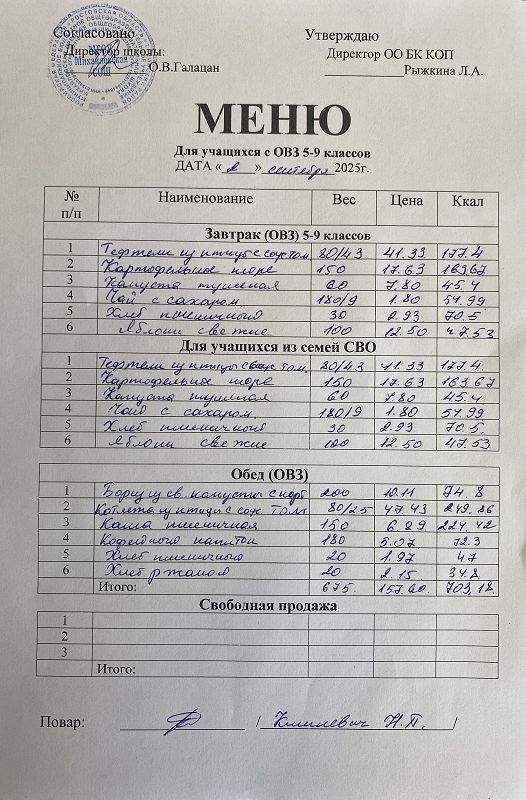 Согласовано Утверждаю
Директор школы: Директор ОО БК КОП
О.В.Галацан Рыжкина Л.А.
МБОУ
Михайловская
СОШ
МЕНЮ
Для учащихся с ОВЗ 5-9 классов
ДАТА « 2 » сентября 2025г.
№ п/п Наименование Вес Цена Ккал
Завтрак (ОВЗ) 5-9 классов
1 Тефтели из птицы с соус том 80/43 41.33 177.4
2 Картофельное пюре 150 17.63 163,67
3 Капуста тушеная 60 7.80 45.4
4 Чай с сахаром 180/9 1.80 54.99
5 Хлеб пшеничного 30 2.93 70.5
6 Яблоки свежие 100 12.50 47.53
Для учащихся из семей СВО
1 Тефтели из птицы с соус том. 80/43 41.33 177.4.
2 Картофельное пюре 150 17.63 163 67
3 Капуста тушеная 60 7.80 45.4
4 Чай с сахаром. 180/9 1.80 54.99
5 Хлеб пшеничного 30 2.93 70.5.
6 Яблоки свежие 100 12.50 47.53
Обед (ОВЗ)
1 Борщ из св. капусты с карт 200 10.11 74.8
2 Котлета из птицы с соус. том 80/25 47.43 249.86
3 Каша пшеничная 150 6.29 224.42
4 Кофейного напиток 180 5.07 72.3
5 Хлеб пшеничного 20 1.97 47
6 Хлеб ржаной 20 2.15 34.8
Итого: 675. 157.60. 703,18
Свободная продажа
1
2
3
Итого:
Повар: / Н.П. /